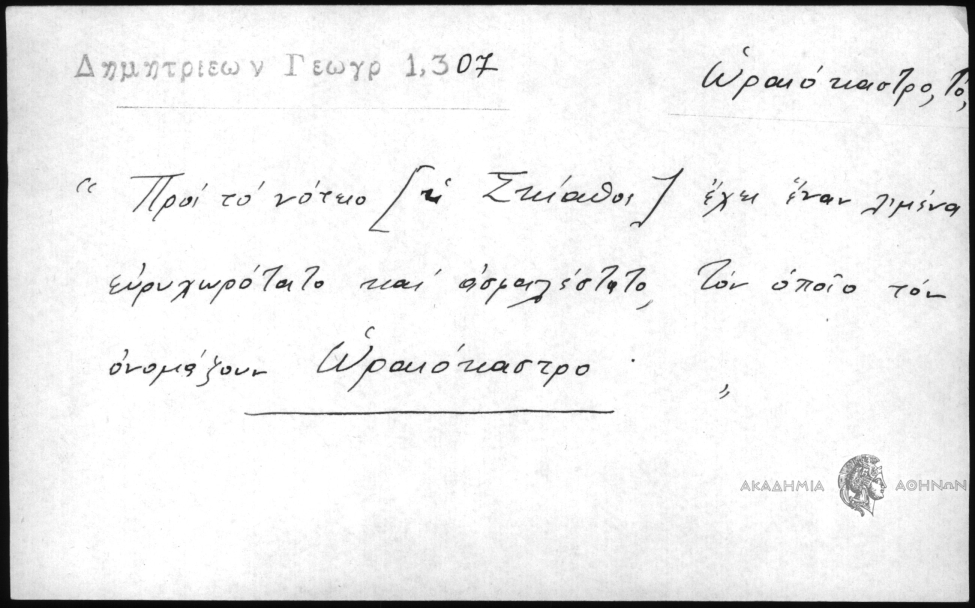 Δημητριεων Γεωγρ 1,307
Ὡραιόκαστρο, τό,
“ Πρός τό νότειο [ἡ Σκίαθος] ἔχει ἕναν λιμένα
εὐρυχωρότατο καί ἀσφαλέστατο, τόν ὁποῖο τόν
ὀνομάζουν Ὡραιόκαστρο. ”
ΑΚΑΔΗΜΙΑ ΑΘΗΝΩΝ